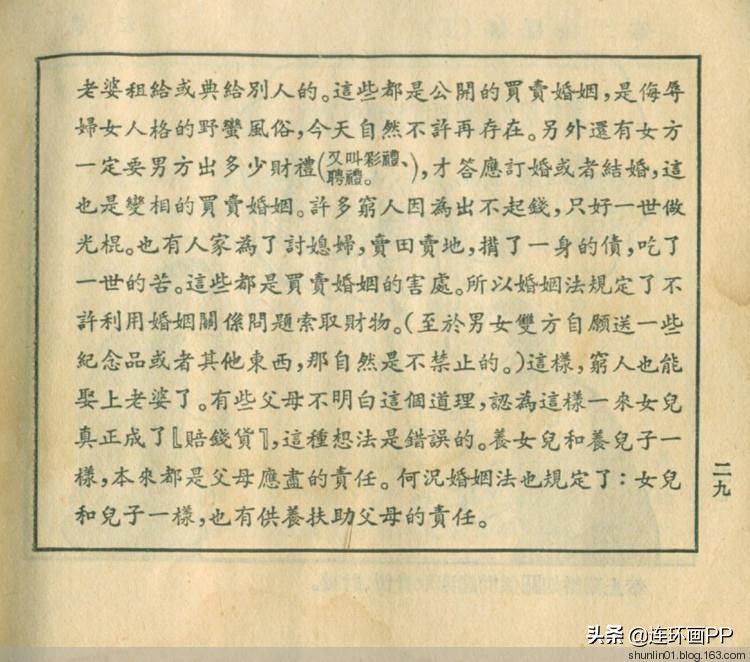 老婆租給或典給別人的。這些都是公開的買賣婚姻，是侮辱
婦女人格的野蠻風俗，今天自然不許再存在。另外還有女方
一定要男方出多少財禮(又叫彩禮、聘禮。)，才答應訂婚或者結婚，這
也是變相的買賣婚姻。許多窮人因為出不起錢，只好一世做
光棍。也有人家為了討媳婦，賣田賣地，揹了一身的債，吃了
一世的苦。這些都是買賣婚姻的害處。所以婚姻法規定了不
許利用婚姻關係問題索取財物。(至於男女雙方自願送一些
紀念品或者其他東西，那自然是不禁止的。)這樣，窮人也能
娶上老婆了。有些父母不明白這個道理，認為這樣一來女兒
真正成了〖賠錢貨〗，這種想法是錯誤的。養女兒和養兒子一
樣，本來都是父母應盡的責任。何況婚姻法也規定了：女兒
和兒子一樣，也有供養扶助父母的責任。
二九
头条 @连环画PP
shunlin01.blog.163.com